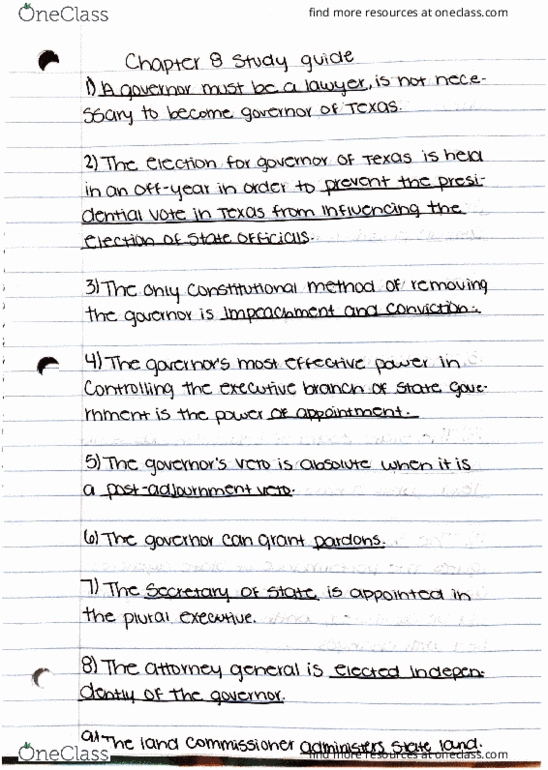 OneClass
find more resources at oneclass.com
Chapter 8 Study guide
1) A governor must be a lawyer, is not nece-
ssary to become governor of Texas.
2) The election for governor of Texas is held
in an off-year in order to prevent the presi-
dential vote in Texas from influencing the
election of state officials.
3) The only constitutional method of removing
the governor is impeachment and conviction.
4) The governor's most effective power in
controlling the executive branch of state gove-
rnment is the power of appointment.
5) The governor's veto is absolute when it is
a post-adjournment veto.
6) The governor can grant pardons.
7) The Secretary of State is appointed in
the plural executive.
8) The attorney general is elected indepen-
dently of the governor.
9) The land commissioner administers state land.
OneClass
find more resources at oneclass.com